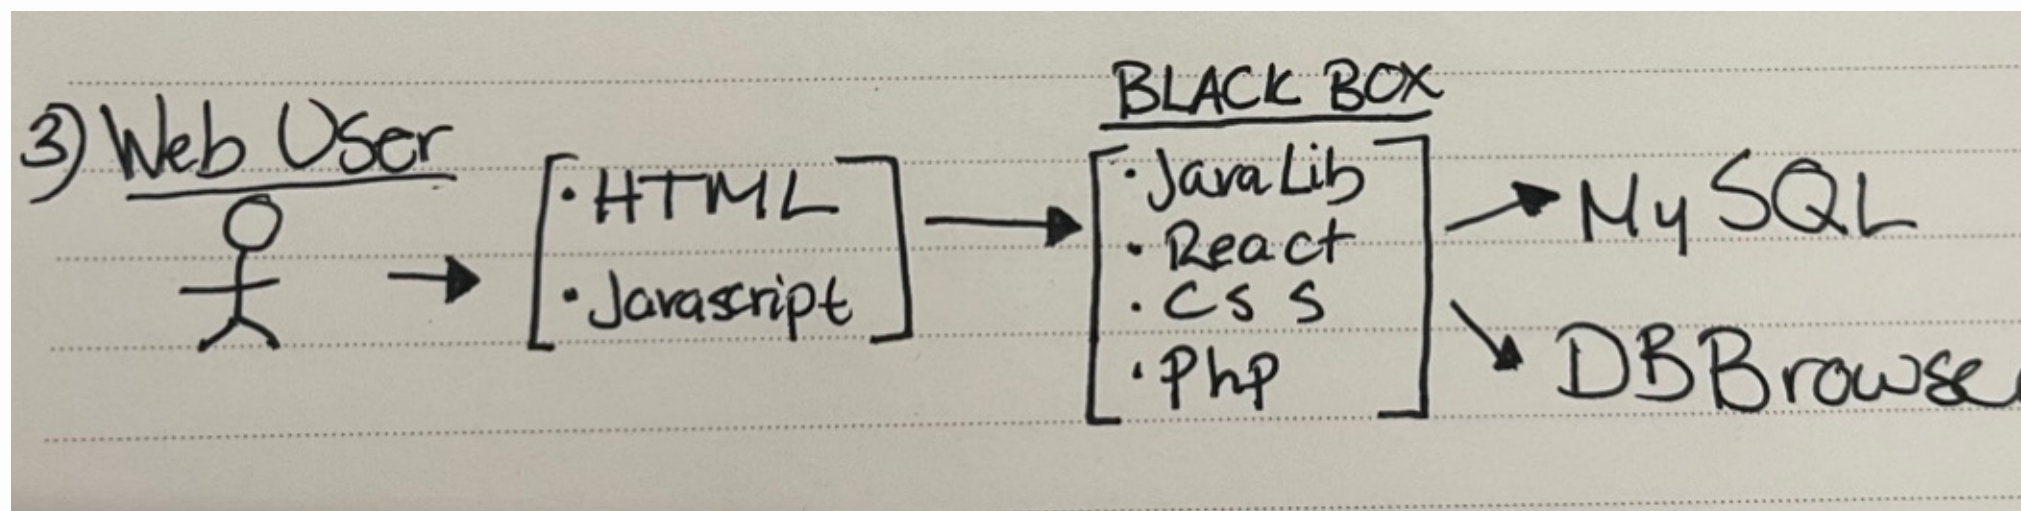 3) Web User
· HTML
· Javascript
BLACK BOX
· Java Lib
· React
· CSS
· Php
MySQL
DB Browse